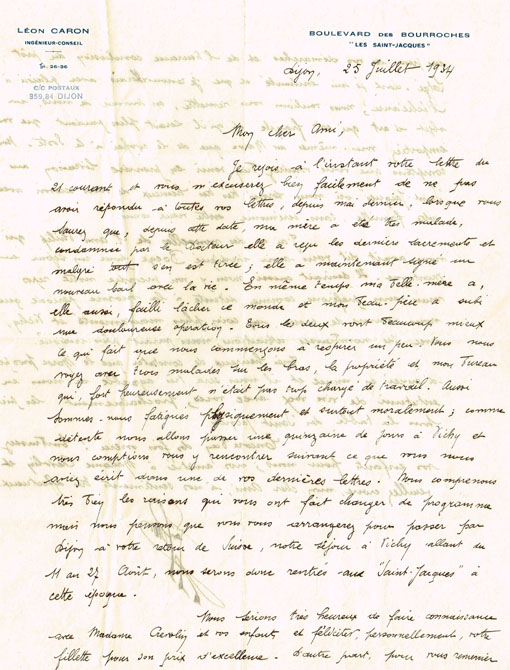 LÉON CARON
INGÉNIEUR-CONSEIL
Tél. 26-36
C/C POSTAUX
359,84 DIJON
BOULEVARD DES BOURROCHES
"LES SAINT-JACQUES"
Dijon, 25 Juillet 1934
Mon cher Ami,
Je reçois à l'instant votre lettre du
21 courant et vous m'excuserez bien facilement de ne pas
avoir répondu à toutes vos lettres, depuis mai dernier, lorsque vous
saurez que, depuis cette date, ma mère a été très malade,
condamnée par le Docteur elle a reçu les derniers sacrements et
malgré tout s'en est tirée ; elle a maintenant signé un
nouveau bail avec la vie. En même temps ma belle-mère a,
elle aussi, failli lâcher ce monde et mon beau-père a subi
une douloureuse opération. Tous les deux vont beaucoup mieux
ce qui fait que nous commençons à respirer un peu. Vous nous
voyez avec trois malades sur les bras, la propriété et mon bureau
qui, fort heureusement n'était pas trop chargé de travail. Aussi
sommes-nous fatigués physiquement et surtout moralement ; comme
détente nous allons passer une quinzaine de jours à Vichy et
nous comptions vous y rencontrer suivant ce que vous nous
aviez écrit dans une de vos dernières lettres. Nous comprenons
très bien les raisons qui vous ont fait changer de programme
mais nous pensons que vous vous arrangerez pour passer par
Dijon à votre retour de Suisse, notre séjour à Vichy allant du
11 au 27 Août, nous serons donc rentrés aux "Saint-Jacques" à
cette époque.
Nous serions très heureux de faire connaissance
avec Madame et vos enfants et féliciter, personnellement, votre
fillette pour son prix d'excellence. D'autre part, pour vous remercier